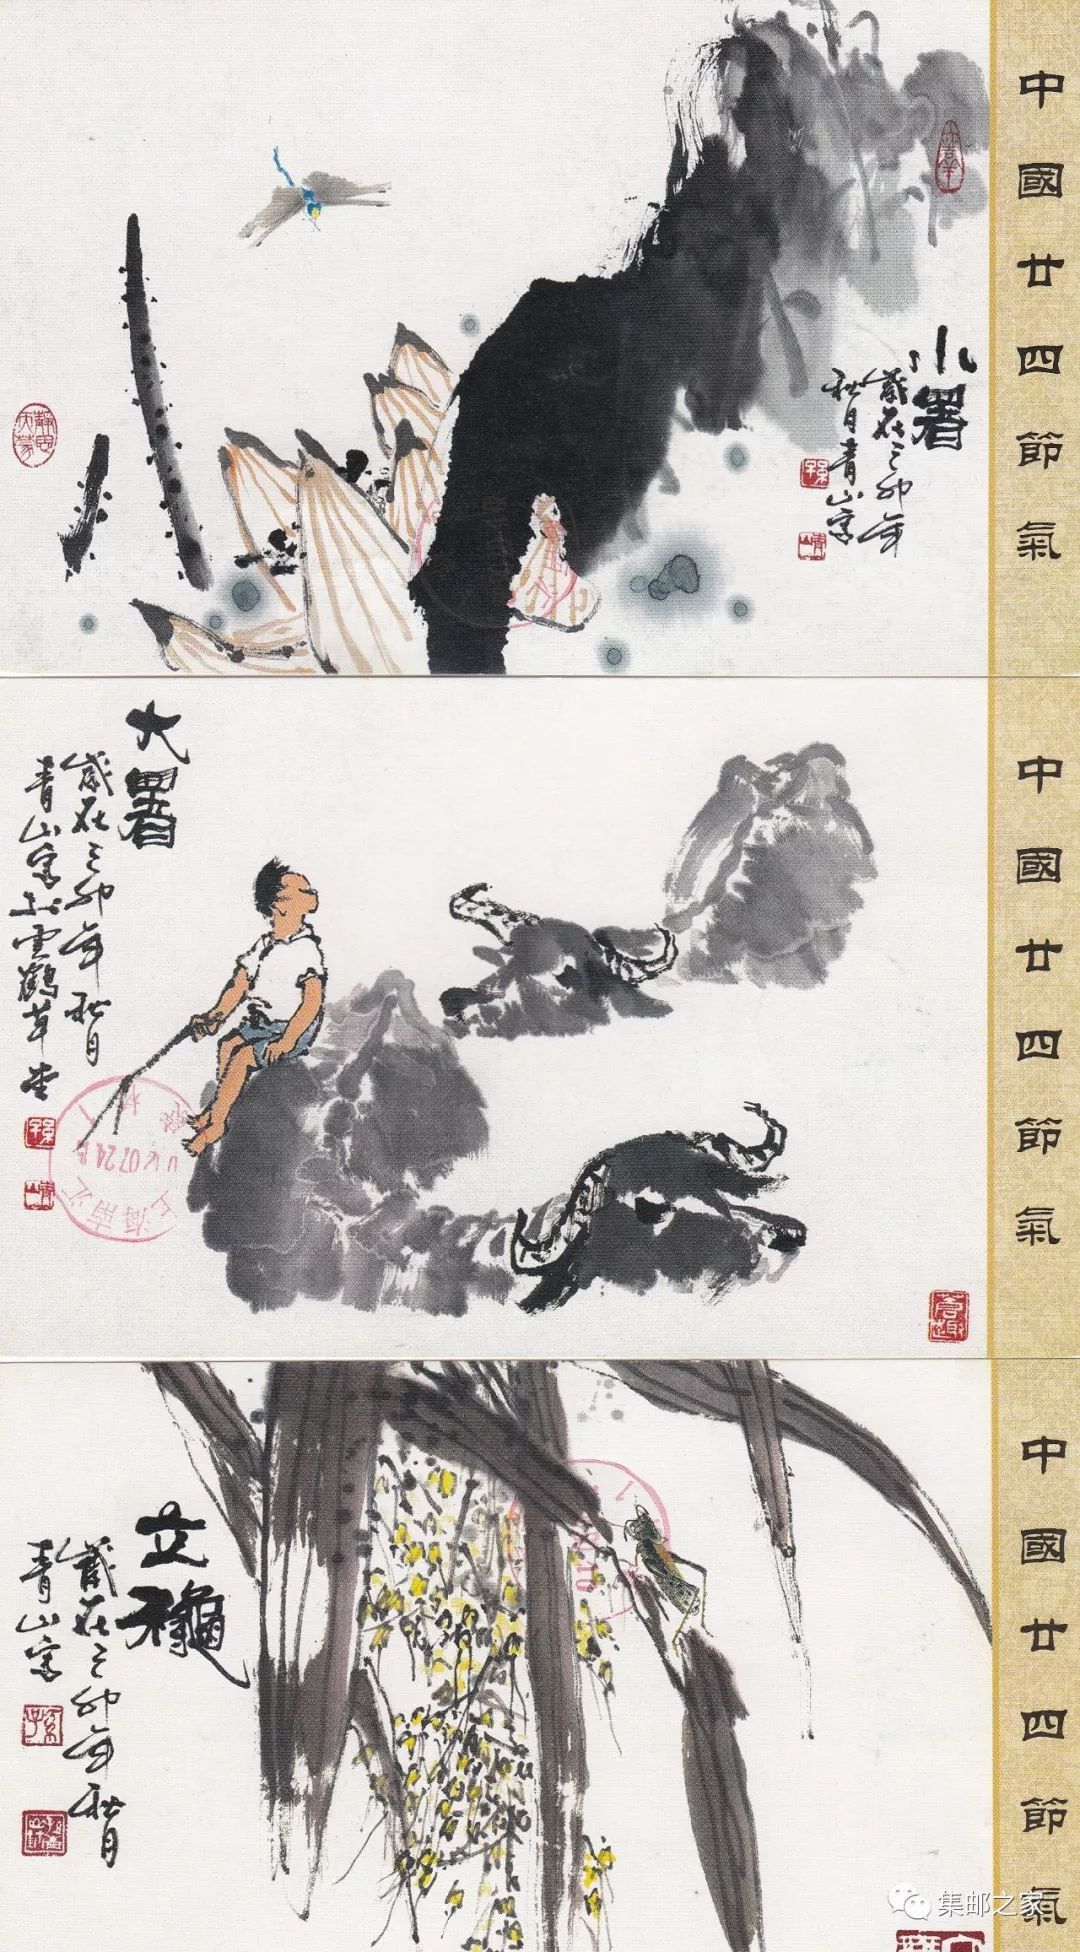 中國廿四節氣
小暑
歲在己卯年
秋月青山寫
中國廿四節氣
大暑
歲在己卯年秋月
青山寫於雲鶴草堂
07.24
上海南汇
中國廿四節氣
立龝
歲在己卯年秋月
青山寫
集邮之家